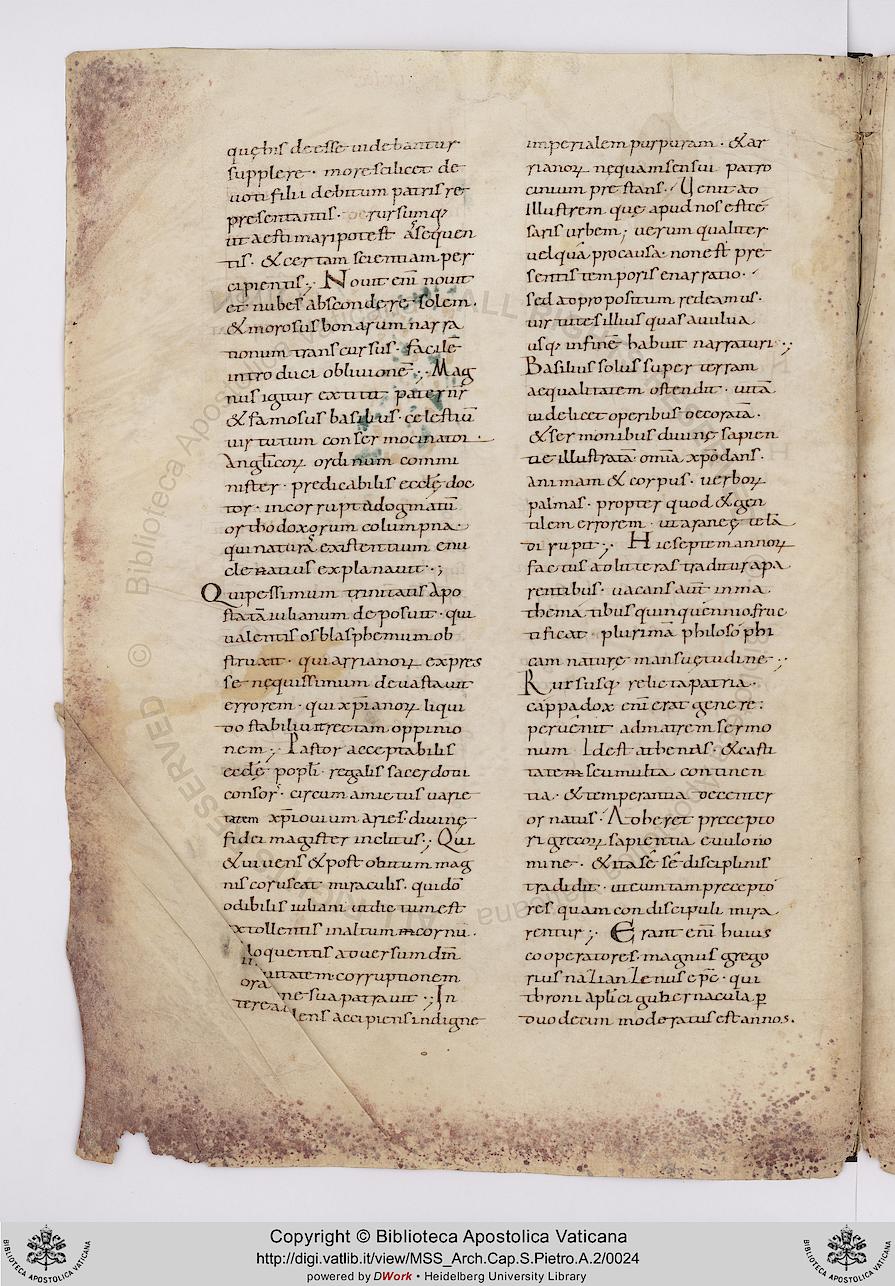 quę his deesse uidebantur
supplere · more scilicet de
uoti filii debitum patris re
presentantis · rursumq;
ut aestimari potest assequen
tis · & certam scientiam per
cipientis ·; Nouit eni nouit
et nubes abscondere solem ·
& morosus bonarum narra
tionum transcursus · facile
introduci obliuione ·; Mag
nus igitur extitit pater nr
& famosus basilius · cęlestiu
uirtutum consermocinator ·
Anglicoꝝ ordinum commi
nister · predicabilis ecclę doc
tor · incorrupta dogmatu
orthodoxorum columpna ·
qui natura existentium enu
cleatius explanauit · ;
Qui pessimum trinitatis apo
statā iulianum deposuit · qui
ualentis os blasphemum ob
struxit · qui arrianoꝝ expres
se nequissimum deuastauit
errorem · qui xpianoꝝ liqui
do stabiliuit rectam oppinio
nem ·; Pastor acceptabilis
ecclę popli · regalis sacerdotii
consors · circum amictus uarie
tatem xpi ouium aries · diuinę
fidei magister inclitus ·; Qui
& uiuens & post obitum mag
nis coruscat miraculis · qui do
odibilis iuliani ut dictum est
extollentis in altum cornu ·
loquentis aduersum dm
uitatem corruptionem
ne sua patrauit ·; In
terea lens accipiens indigne
imperialem purpuram · & ar
rianoꝝ nequam sensui patro
cinium prestans · Uenit ad
Illustrem quę apud nos est ce
saris urbem ; uerum qualiter
uel qua pro causa · non est pre
sentis temporis enarratio ·
sed ad propositum redeamus ·
uirtutes illius quas a uulua
usq; in finē habuit narraturi ·;
Basilius solus super terram
aequalitatem ostendit · uitā
uidelicet operibus decoratā ·
& sermonibus diuinę sapien
tie illustratā · omia xpo dans ·
animam & corpus · uerboꝝ
palmas · propter quod & gen
tilem errorem · ut araneę telā
dirupit ·; Hic septem annoꝝ
factus ad litteras traditur a pa
rentibus · uacans aut in ma
thematibus quinquennio fruc
tificat · plurimā philosophi
cam nature mansuetudine ·;
Rursusq; relicta patria ·
cappadox eni erat genere :
peruenit ad matrem sermo
num Idest athenas · & casti
tatem seu multa continen
tia · & temperantia decenter
ornatus · Adheret precepto
ri grecoꝝ sapientia euulo no
mine · & ita se se disciplinis
tradidit · ut eum tam precepto
res quam condiscipuli mira
rentur ·; Erant eni huius
cooperatores · magnus grego
rius nalianlenus epc · qui
throni aplici gubernacula ꝑ
duodecim moderatus est annos ·
Copyright © Biblioteca Apostolica Vaticana
http://digi.vatlib.it/view/MSS_Arch.Cap.S.Pietro.A.2/0024
powered by DWork • Heidelberg University Library